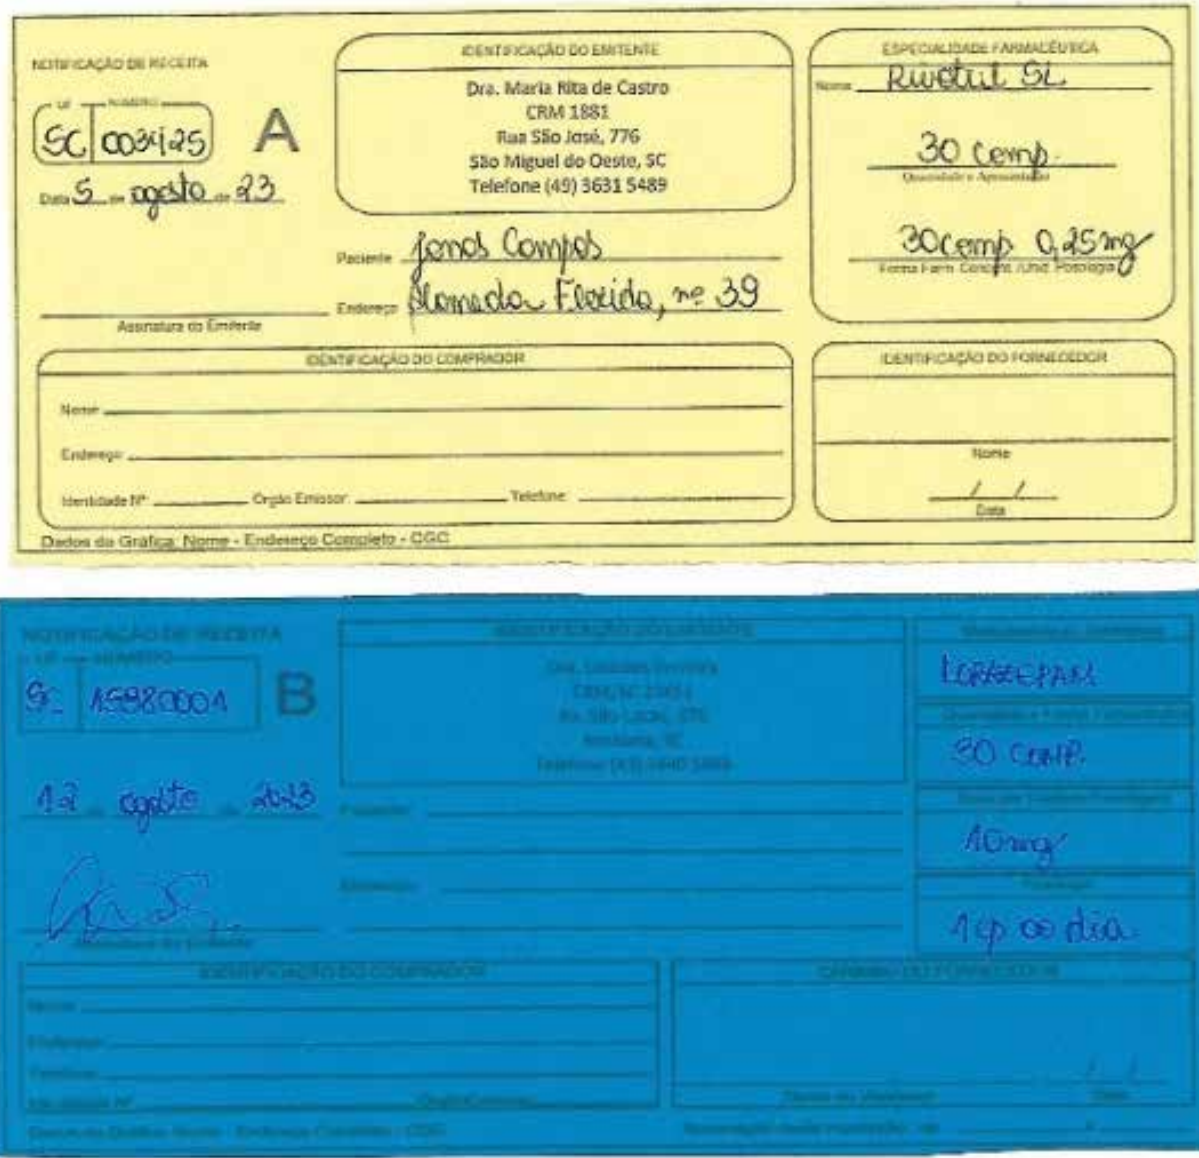 NOTIFICAÇÃO DE RECEITA
UF NÚMERO
SC 003425
A
Data 5 de agosto de 23
Assinatura do Emitente
IDENTIFICAÇÃO DO EMITENTE
Dra. Maria Rita de Castro
CRM 1881
Rua São José, 776
São Miguel do Oeste, SC
Telefone (49) 3631 5489
Paciente Jonas Campos
Endereço Alameda Florida, nº 39
ESPECIALIDADE FARMACÊUTICA
Nome Rivotril SL
30 comp.
Quantidade e Apresentação
30 comp 0,25mg
Forma Farm. Concent. /Unid. Posologia
IDENTIFICAÇÃO DO COMPRADOR
Nome
Endereço
Identidade Nº Orgão Emissor Telefone
IDENTIFICAÇÃO DO FORNECEDOR
Nome
/ /
Data
Dados da Gráfica: Nome - Endereço Completo - CGC
NOTIFICAÇÃO DE RECEITA
UF NÚMERO
SC 15980001
B
12 de agosto de 2023
Assinatura do Emitente
IDENTIFICAÇÃO DO EMITENTE
Paciente
Endereço
LORAZEPAM
30 COMP.
10mg
Posologia
1 cp ao dia
IDENTIFICAÇÃO DO COMPRADOR
Nome
Endereço
Telefone
Identidade Nº
CARIMBO DO FORNECEDOR
/ /
Data
Dados da Gráfica: Nome - Endereço Completo - CGC